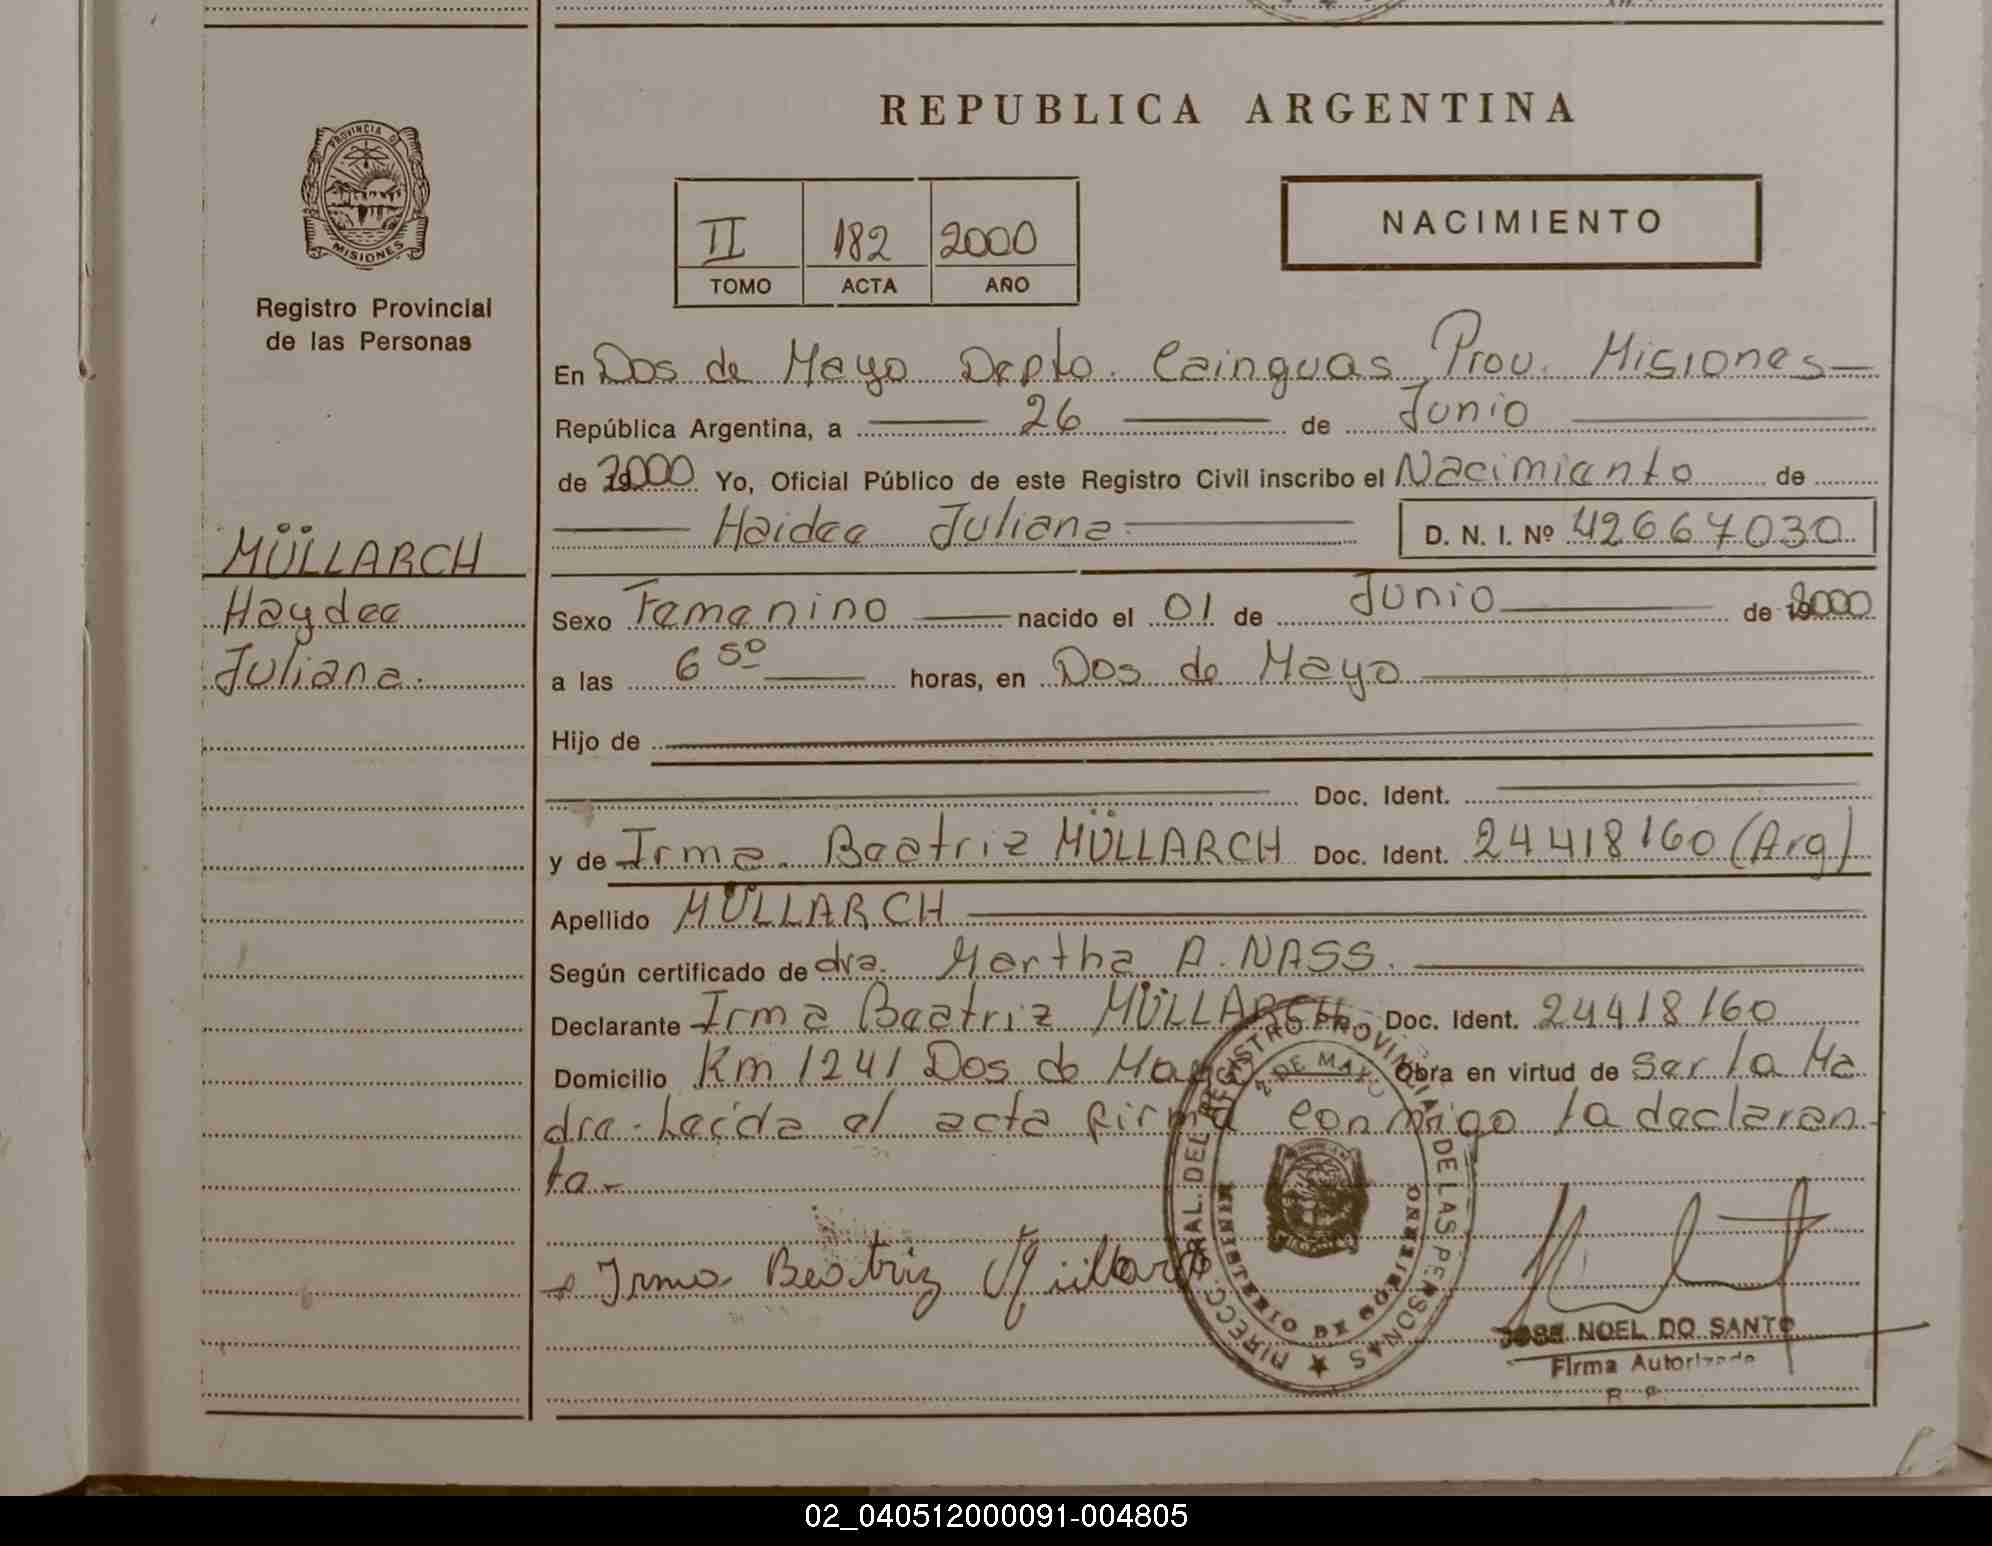 REPUBLICA ARGENTINA
PROVINCIA DE MISIONES
Registro Provincial
de las Personas
II 182 2000
TOMO ACTA AÑO
NACIMIENTO
En Dos de Mayo Depto. Cainguas Prov. Misiones
República Argentina, a 26 de Junio
de 2000 Yo, Oficial Público de este Registro Civil inscribo el Nacimiento de
Haidee Juliana D. N. I. Nº 42667030
MÜLLARCH
Haydee
Juliana.
Sexo Femenino nacido el 01 de Junio de 2000
a las 6 50 horas, en Dos de Mayo
Hijo de
Doc. Ident.
y de Irma Beatriz MÜLLARCH Doc. Ident. 24418160 (Arg)
Apellido MÜLLARCH
Según certificado de dra. Martha A. NASS.
Declarante Irma Beatriz MÜLLARCH Doc. Ident. 24418160
Domicilio Km 1241 Dos de Mayo Obra en virtud de ser la Ma
dre. Leída el acta firma conmigo la declaran
te.-
Irma Beatriz Müllarch
DIRECC. GRAL. DEL REGISTRO PROVINCIAL DE LAS PERSONAS
2 DE MAYO
MINISTERIO DE GOBIERNO
JOSE NOEL DO SANTO
Firma Autorizada
R. P.
02_040512000091-004805